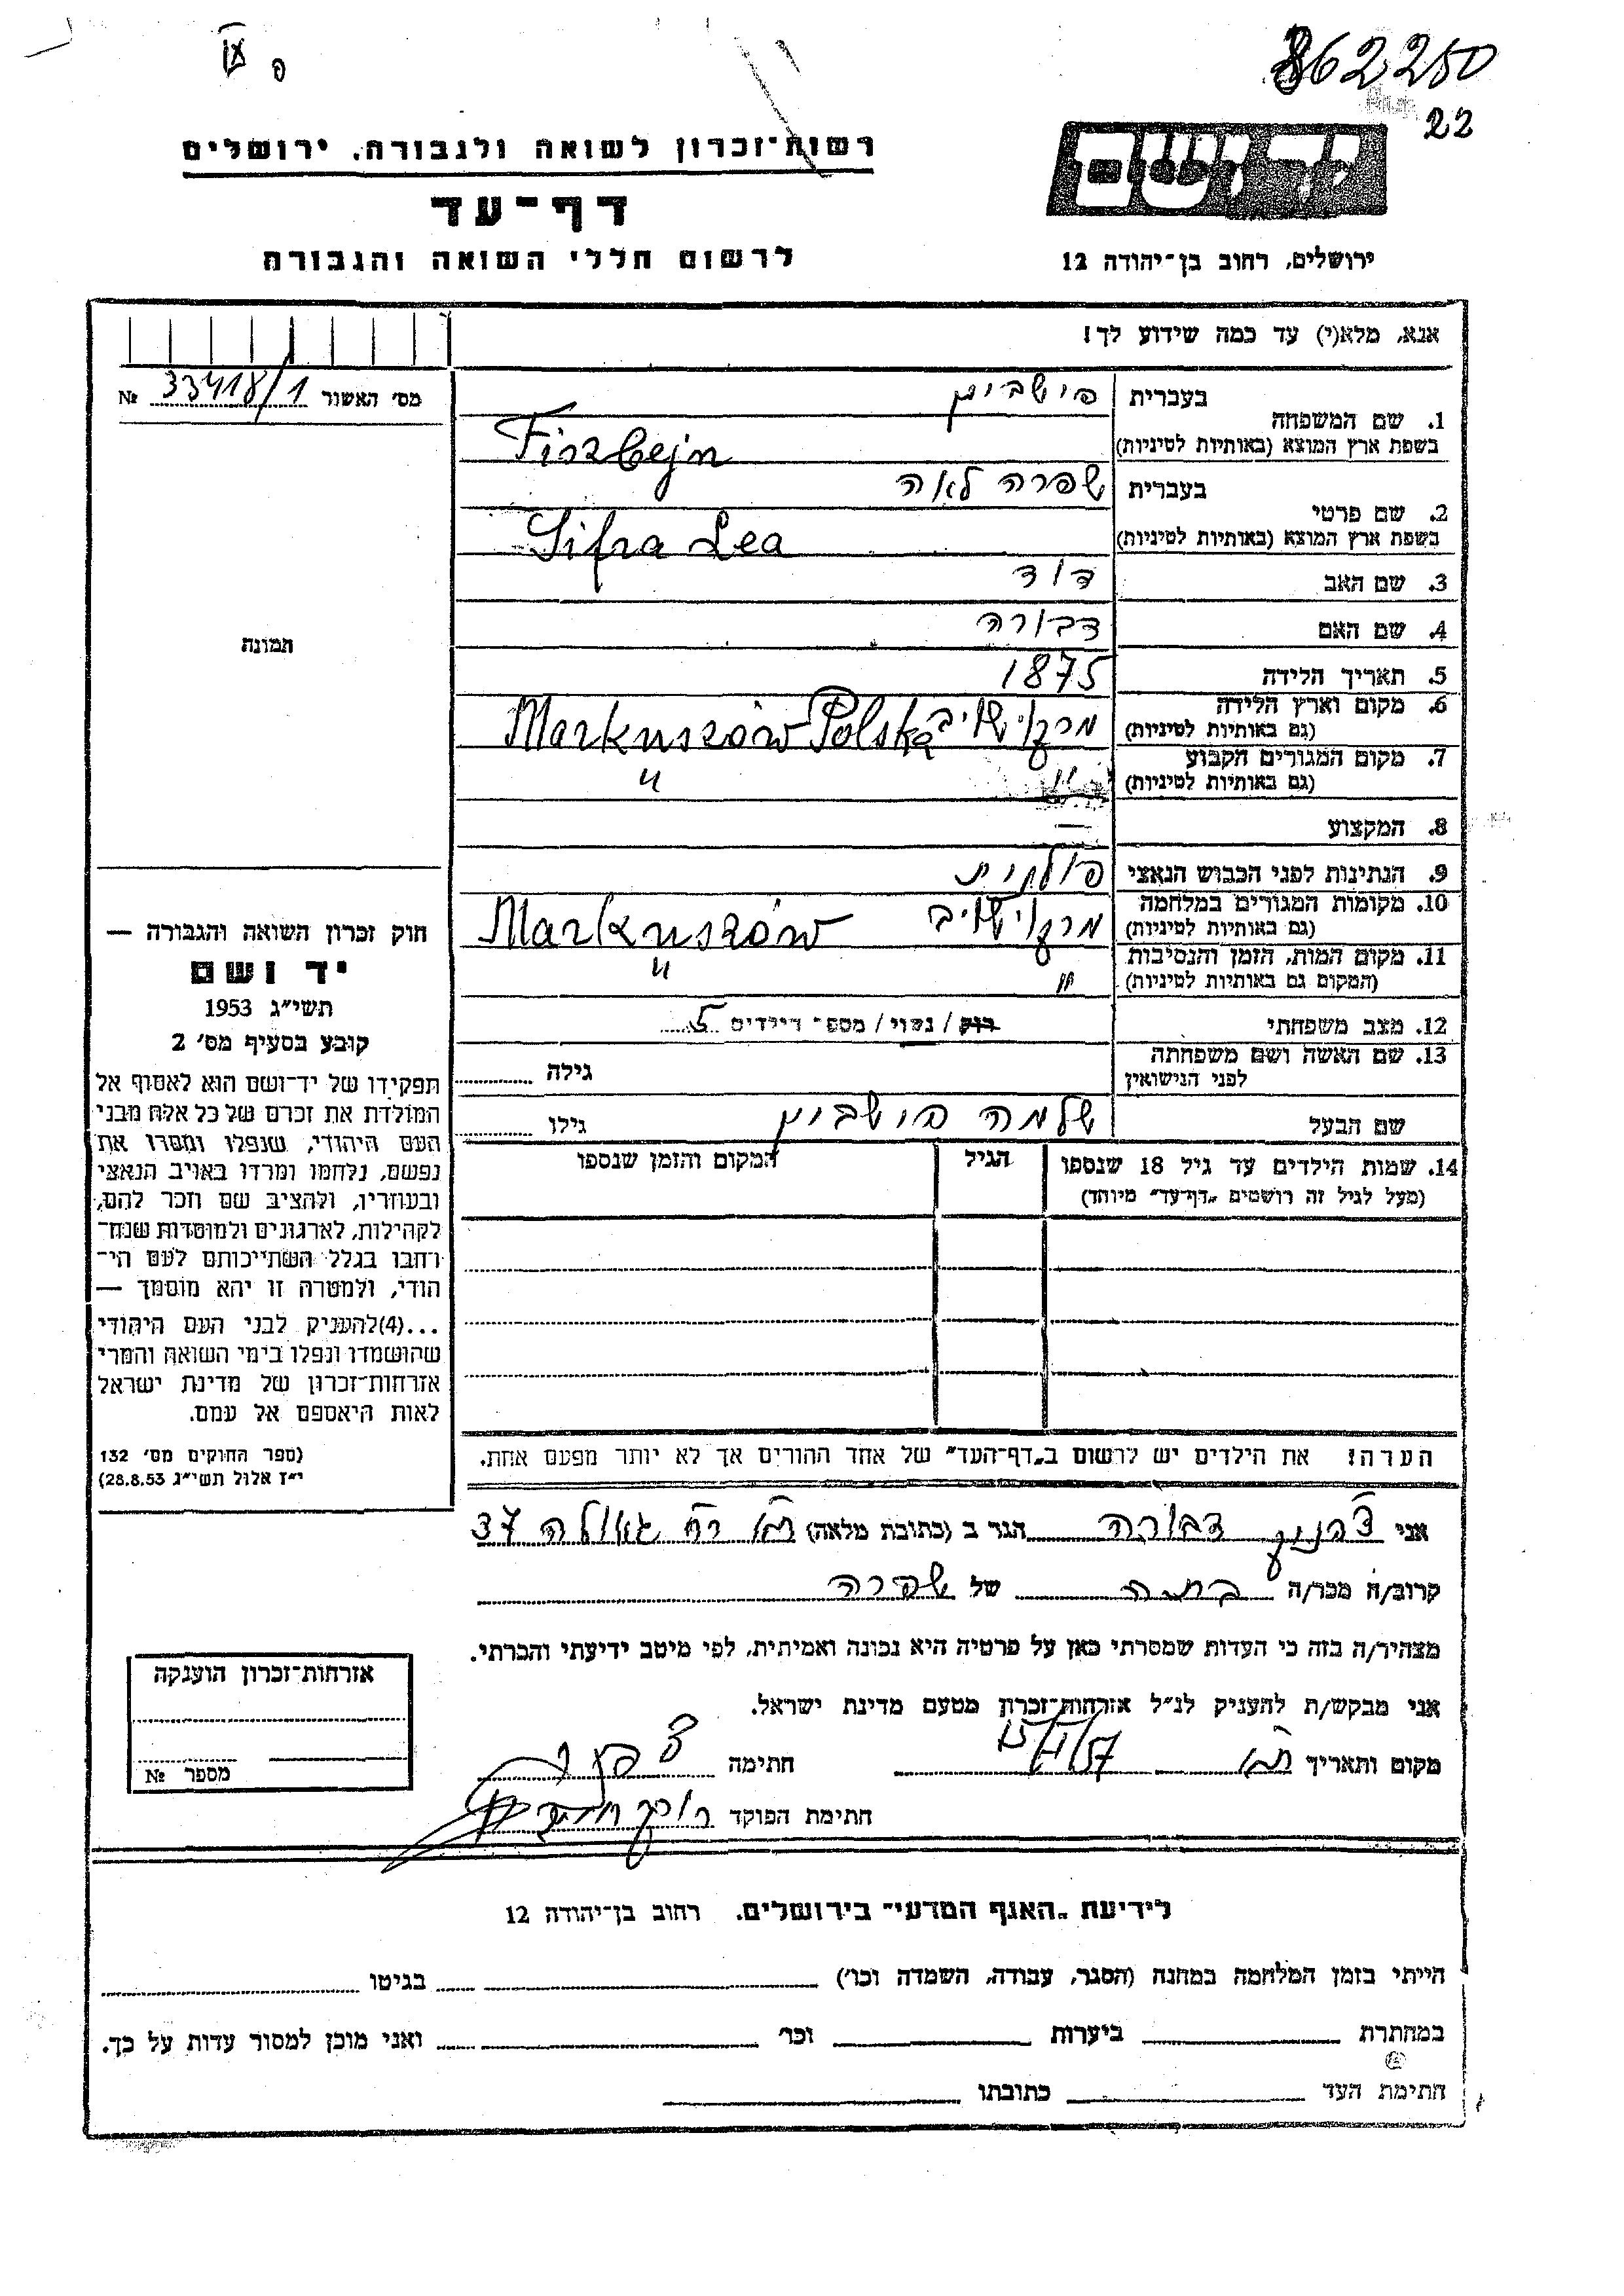 862250
22
רשות־זכרון לשואה ולגבורה, ירושלים
יד ושם
דף־עד
לרשום חללי השואה והגבורה
ירושלים, רחוב בן־יהודה 12
אנא, מלא(י) עד כמה שידוע לך!
מס׳ האשור 33418/1 №
1. שם המשפחה
בעברית פישביין
בשפת ארץ המוצא (באותיות לטיניות) Fiszbejn
2. שם פרטי
בעברית שפרה לאה
בשפת ארץ המוצא (באותיות לטיניות) Sifra Lea
3. שם האב דוד
4. שם האם דבורה
תמונה
5. תאריך הלידה 1875
6. מקום וארץ הלידה מרקושוב Markuszów Polska
(גם באותיות לטיניות)
7. מקום המגורים הקבוע
(גם באותיות לטיניות) " "
8. המקצוע —
9. הנתינות לפני הכבוש הנאצי פולנית
10. מקומות המגורים במלחמה מרקושוב Markuszów
(גם באותיות לטיניות)
11. מקום המות, הזמן והנסיבות
(המקום גם באותיות לטיניות) " "
12. מצב משפחתי רווק / נשוי / מספר הילדים 5
13. שם האשה ושם משפחתה
לפני הנישואין גילה
שם הבעל שלמה פישביין גילו
14. שמות הילדים עד גיל 18 שנספו הגיל המקום והזמן שנספו
(מעל לגיל זה רושמים „דף־עד״ מיוחד)
חוק זכרון השואה והגבורה —
יד ושם
תשי״ג 1953
קובע בסעיף מס׳ 2
תפקידו של יד־ושם הוא לאסוף אל
המולדת את זכרם של כל אלה מבני
העם היהודי, שנפלו ומסרו את
נפשם, נלחמו ומרדו באויב הנאצי
ובעוזריו, ולהציב שם וזכר להם,
לקהילות, לארגונים ולמוסדות שנח־
רחבו בגלל השתייכותם לעם הי־
הודי, ולמטרה זו יהא מוסמך —
...(4)להעניק לבני העם היהודי
שהושמדו ונפלו בימי השואה והמרי
אזרחות־זכרון של מדינת ישראל
לאות היאספם אל עמם.
(ספר החוקים מס׳ 132
י״ז אלול תשי״ג 28.8.53)
הערה! את הילדים יש לרשום ב„דף־העד״ של אחד ההורים אך לא יותר מפעם אחת.
אני דבורה הגר ב (כתובת מלאה) ת"א רח׳ גאולה 37
קרוב/ה מכר/ה בתה של שפרה
מצהיר/ה בזה כי העדות שמסרתי כאן על פרטיה היא נכונה ואמיתית, לפי מיטב ידיעתי והכרתי.
אני מבקש/ת להעניק לנ״ל אזרחות־זכרון מטעם מדינת ישראל.
מקום ותאריך ת"א 15/II/57 חתימה
חתימת הפוקד
אזרחות־זכרון הוענקה
מספר №
לידיעת „האגף המדעי״ בירושלים. רחוב בן־יהודה 12
הייתי בזמן המלחמה במחנה (הסגר, עבודה, השמדה וכו׳) בגיטו
במחתרת ביערות וכו׳ ואני מוכן למסור עדות על כך.
חתימת העד כתובתו